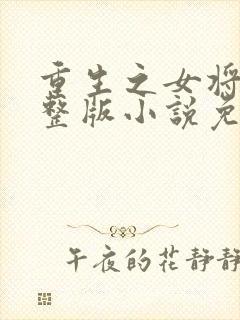 重生之女将
整版小説免
午夜的花静静